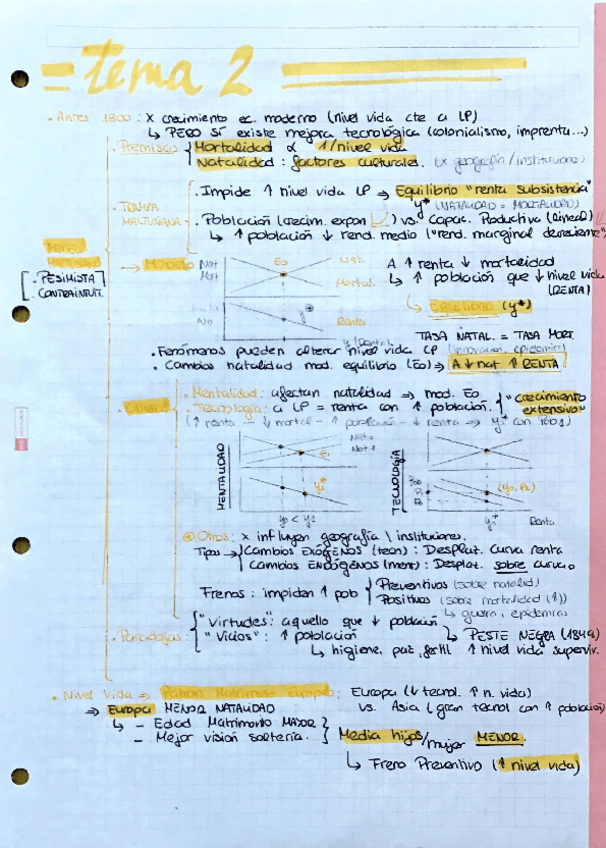 tema 2
• Antes 1800: X crecimiento ec. moderno (nivel vida cte a LP)
↳ PERO SÍ existe mejora tecnológica (colonialismo, imprenta...)
• Premisas { Mortalidad α 1/nivel vida
Natalidad: factores culturales. (x geografía/instituciones)
• TRAMPA MALTUSIANA
• Impide ↑ nivel vida LP ⇒ Equilibrio "renta subsistencia"
y* (NATALIDAD = MORTALIDAD)
• Población (crecim. expon) vs. Capac. Productiva (lineal)
↳ ↑ población ↓ rend. medio ("rend. marginal decreciente")
[ • PESIMISTA
• CONTRAINTUIT. ]
→ MODELO
Nat
Mort
Eo
Nat.
Mortal.
No
Renta
y (Renta)
A ↑ renta ↓ mortalidad
↳ ↑ población que ↓ nivel vida
(RENTA)
↳ Equilibrio (y*)
TASA NATAL. = TASA MORT.
• Fenómenos pueden alterar nivel vida CP (innovación, epidemia)
• Cambios natalidad mod. equilibrio (Eo) ⇒ A ↓ nat ↑ RENTA
• Mentalidad: afectan natalidad ⇒ mod. Eo
• Tecnología: a LP = renta con ↑ población. { "crecimiento extensivo"
(↑ renta ↓ mortal - ↑ población - ↓ renta → y* con
MENTALIDAD
yo < y
TECNOLOGÍA
Renta
Otros: x influyen geografía \ instituciones.
Tipos → Cambios EXÓGENOS (tecn): Desplaz. curva renta
Cambios ENDÓGENOS (ment): Desplaz. sobre curva
Frenos: impiden ↑ pob { Preventivos (sobre natalid)
Positivos (sobre mortalidad (↑))
↳ guerra, epidemias
• Paradojas: { "Virtudes": aquello que ↓ población
↳ PESTE NEGRA (1349)
"Vicios": ↑ población
↳ higiene, paz, fertil
↑ nivel vida superviv.
• Nivel Vida ⇒ Patrón Matrimonio Europeo: Europa (↓ tecnol. ↑ n. vida)
vs. Asia (gran tecnol con ↑ población)
⇒ Europa MENOR NATALIDAD
↳ - Edad Matrimonio MAYOR
- Mejor visión soltería. } Media hijos/mujer MENOR
↳ Freno Preventivo (↑ nivel vida)